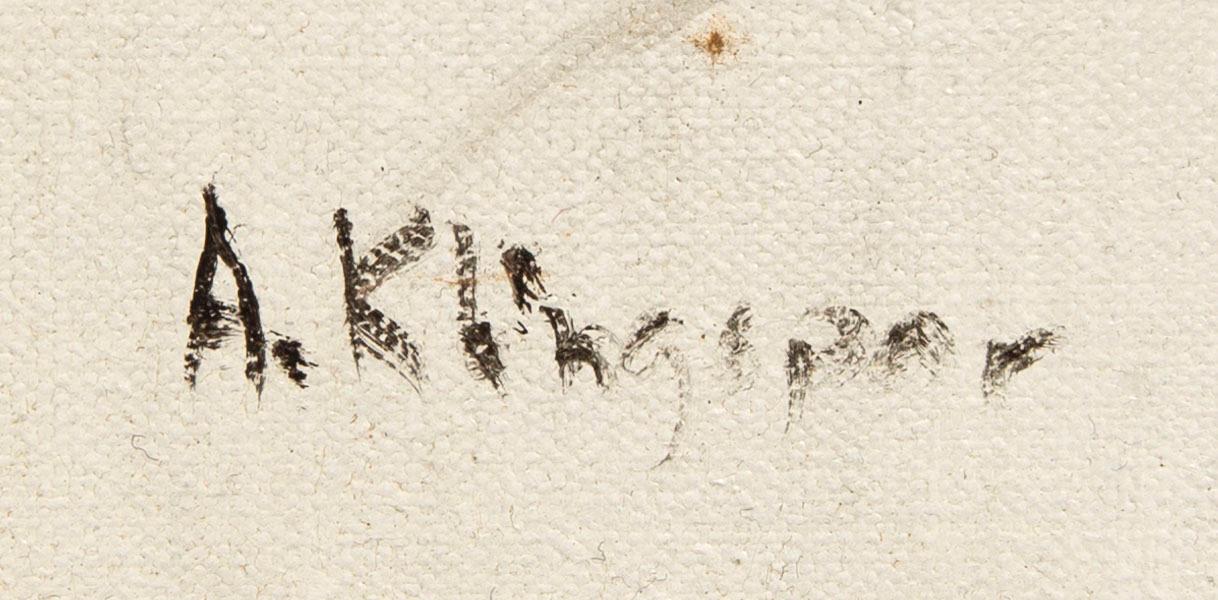 A. Klingspor